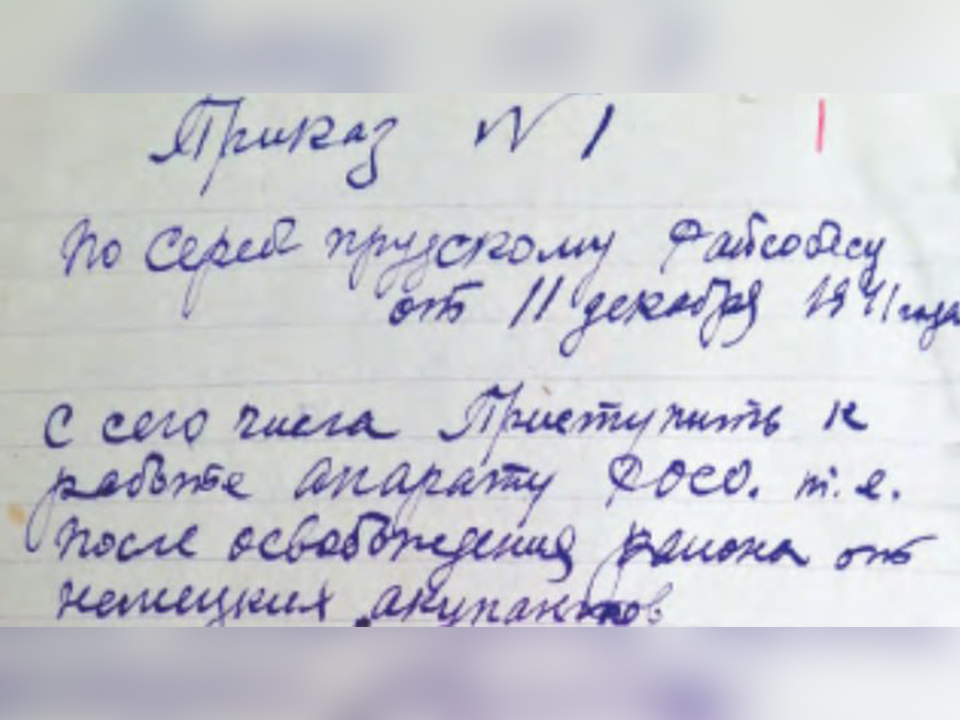 Приказ № 1
1
по Серебпрудскому Райсобесу
от 11 декабря 1941 года
С сего числа Приступить к
работе апарату РОСО. т.е.
после освобождения района от
немецких акупантов